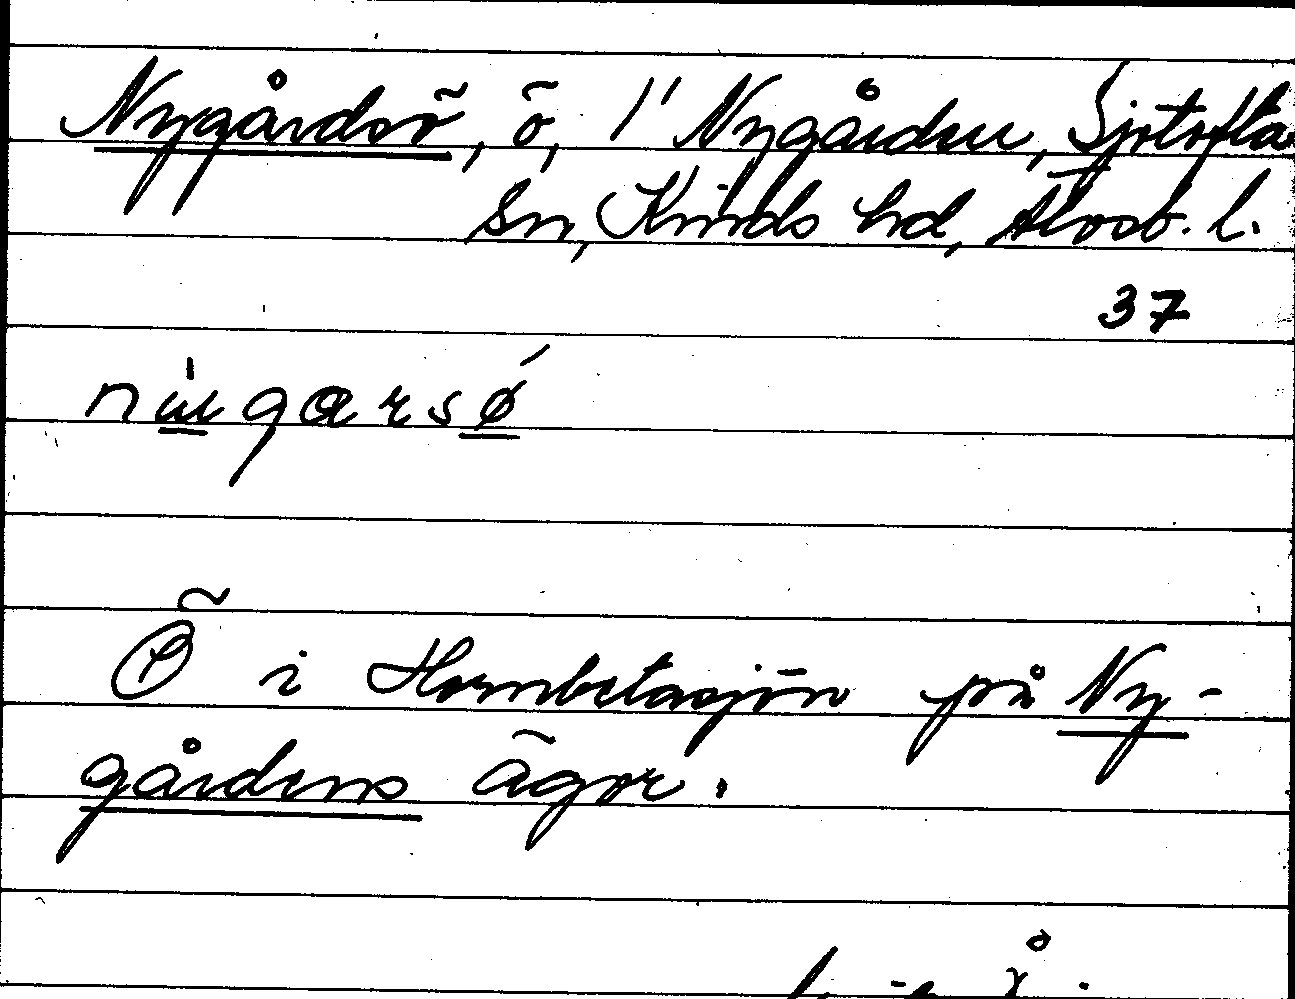 Nygårdsö, ö, 1' Nygården, Sjötofta
Sn, Kinds hd, Älvsb. l.
37
Ö i Hornbetasjön på Ny-
gårdens ägor.